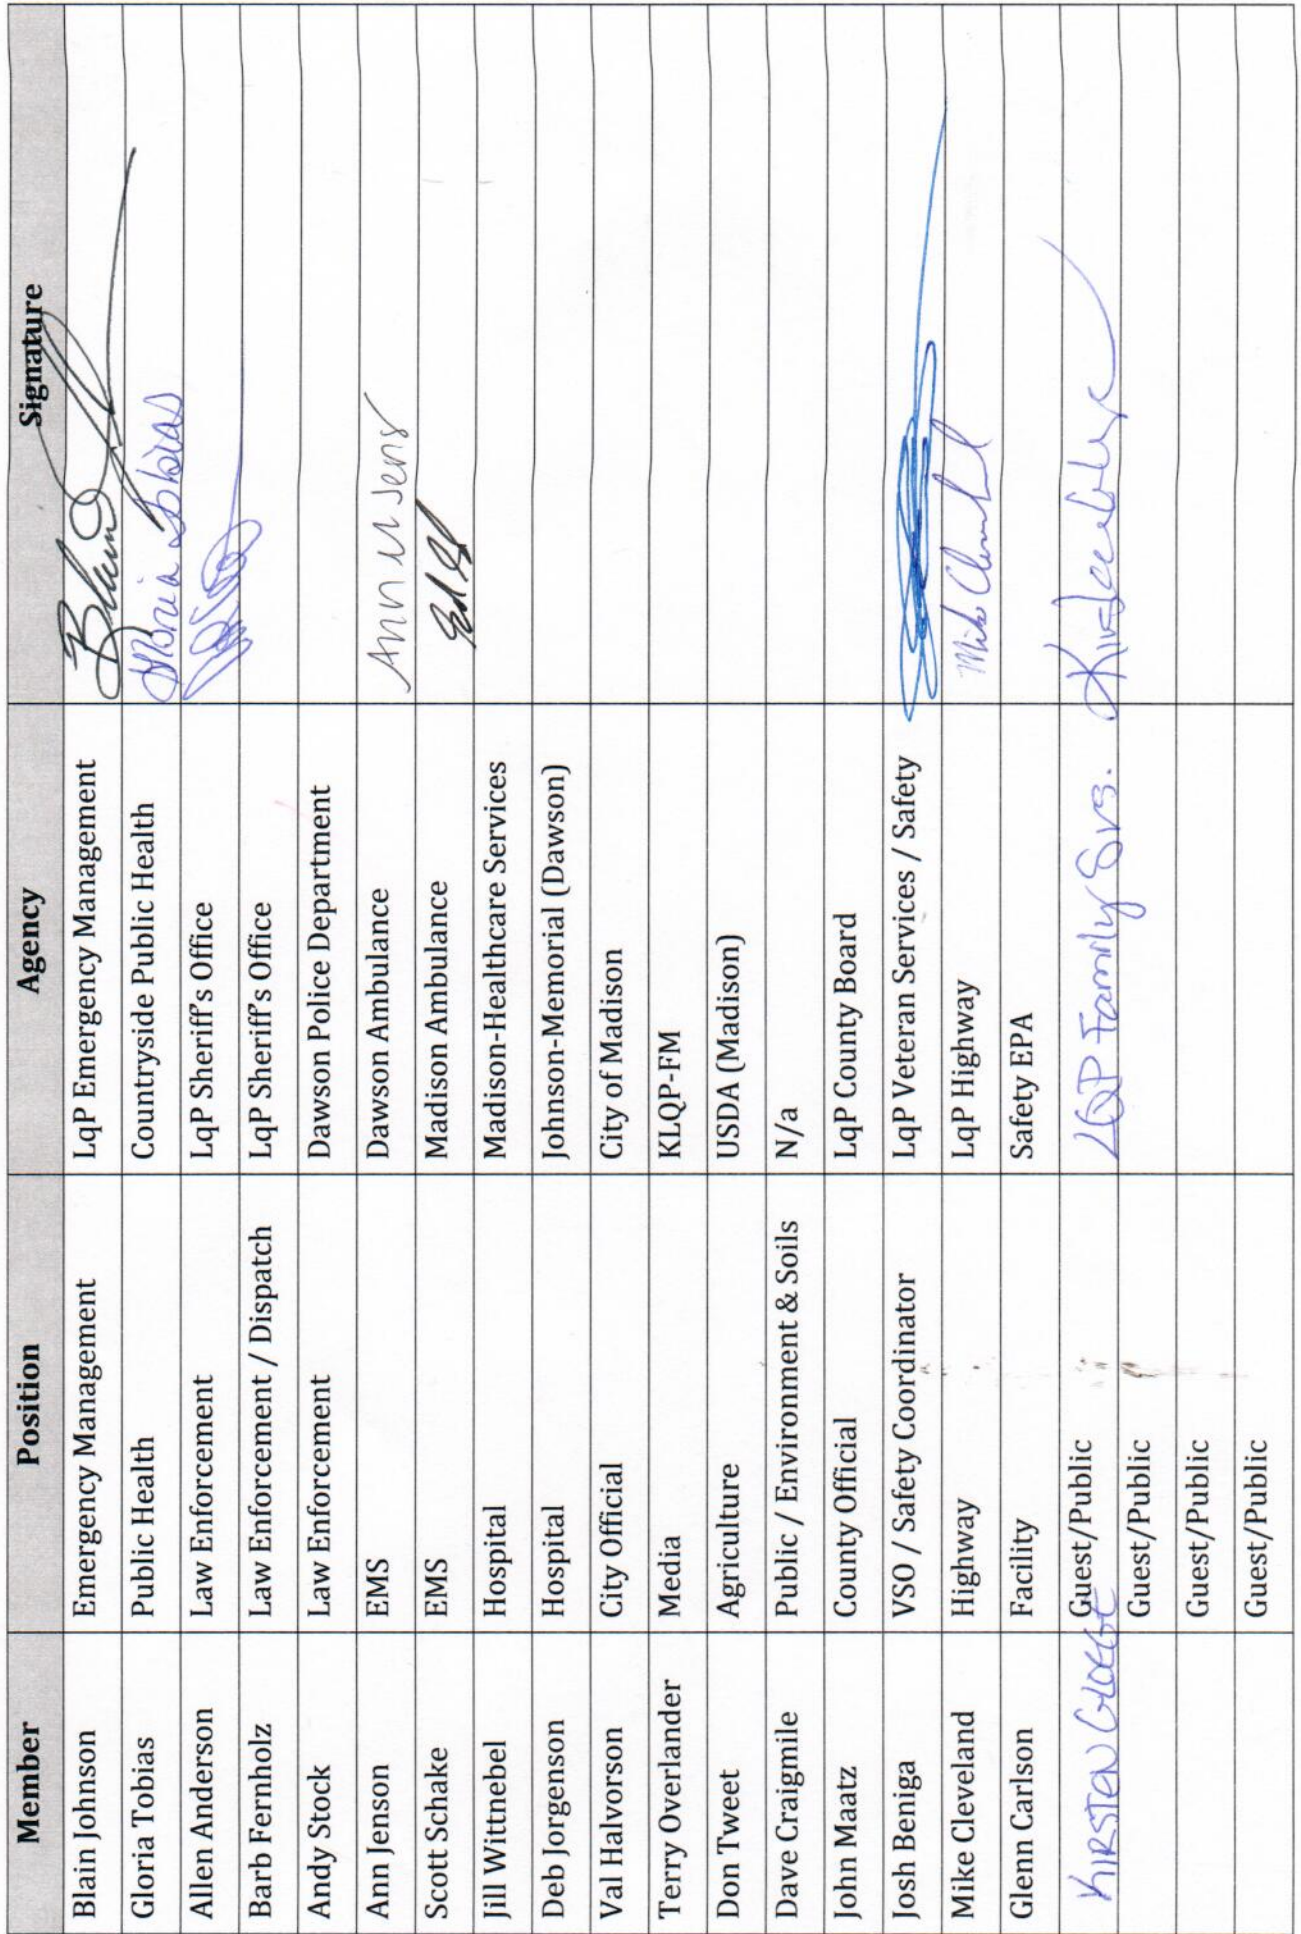 Member Position Agency Signature
Blain Johnson Emergency Management LqP Emergency Management Blain
Gloria Tobias Public Health Countryside Public Health Gloria Tobias
Allen Anderson Law Enforcement LqP Sheriff's Office
Barb Fernholz Law Enforcement / Dispatch LqP Sheriff's Office
Andy Stock Law Enforcement Dawson Police Department
Ann Jenson EMS Dawson Ambulance Ann M Jens
Scott Schake EMS Madison Ambulance
Jill Wittnebel Hospital Madison-Healthcare Services
Deb Jorgenson Hospital Johnson-Memorial (Dawson)
Val Halvorson City Official City of Madison
Terry Overlander Media KLQP-FM
Don Tweet Agriculture USDA (Madison)
Dave Craigmile Public / Environment & Soils N/a
John Maatz County Official LqP County Board
Josh Beniga VSO / Safety Coordinator LqP Veteran Services / Safety
Mike Cleveland Highway LqP Highway Mike
Glenn Carlson Facility Safety EPA
KIRSTEN Guest/Public LQP Family Svs.
Guest/Public
Guest/Public
Guest/Public